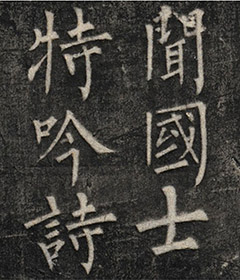 聞國士
特吟詩